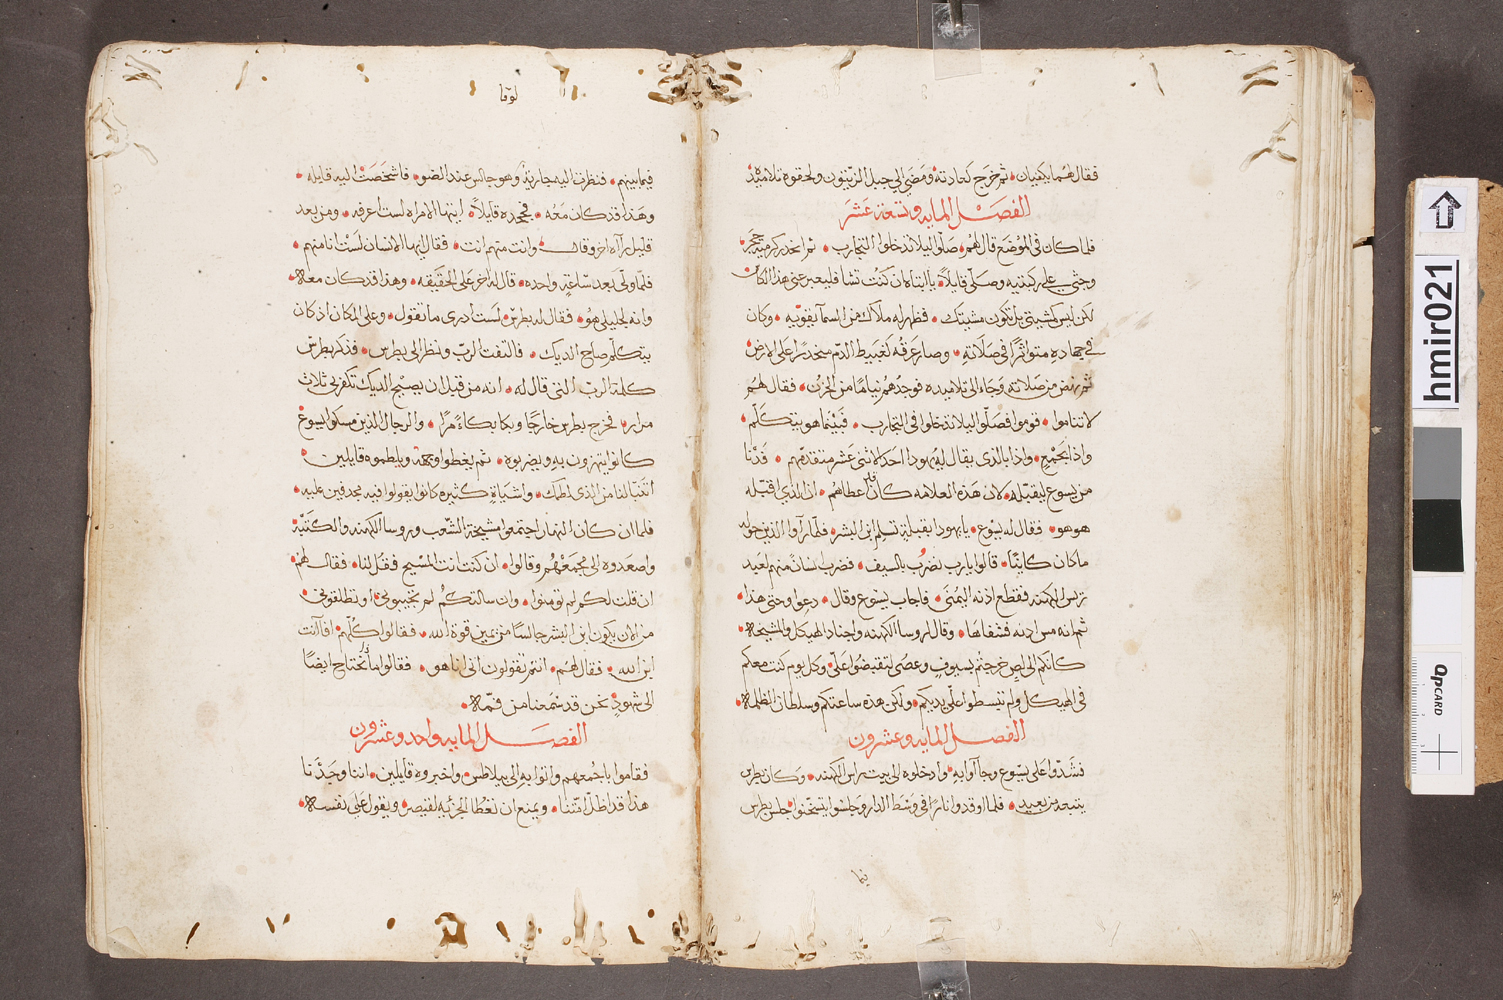 فقال لهما يكفيان ثم خرج كعادته ومضى الى جبل الزيتون ولحقوه تلاميذه
الفصل المايه وتسعة عشر
فلما كان فى الموضع قال لهم صلوا ليلا تدخلوا التجارب ثم انحدر كرمية حجر
وجثى على ركبتيه وصلى قايلاً يا ابتاه ان كنت تشا فليعبر عنى هذا الكاس
لكن ليس كمشيتى بل تكون مشيتك فظهر له ملاك من السما يقويه وكان
فى جهاده متواترًا فى صلاته وصار عرقه كغبيط الدم منحدرًا على الارض
ثم نهض من صلاته وجاء الى تلاميذه فوجدهم نيامًا من الحزن فقال لهم
لا تناموا قوموا فصلوا ليلا تدخلوا فى التجارب فبينما هو يتكلم
واذا بجمع واذا بالذى يقال له يهودا احد الاثنى عشر متقدمهم فدنا
من يسوع ليقبله لان هذه العلامه كان قد اعطاهم ان الذى اقبله
هو هو فقال له يسوع يا يهودا بقبلة تسلم ابن البشر فلما راوا الذين حوله
ما كان كاينًا قالوا يا رب نضرب بالسيف فضرب انسانًا منهم لعبد
ريس الكهنه فقطع اذنه اليمنى فاجاب يسوع وقال دعوا وحتى هذا
ثم انه مس اذنه فشفاها وقال لروسا الكهنه واجناد الهيكل والمشيخه
كانكم الى لص خرجتم بسيوف وعصى لتقبضوا على وكل يوم كنت معكم
فى الهيكل ولم تبسطوا على يديكم ولكن هذه ساعتكم وسلطان الظلمه
الفصل المايه وعشرون
فشدوا على يسوع وجاآوا به وادخلوه الى بيت راس الكهنه وكان بطرس
يتبعه من بعيد فلما اوقدوا نارًا فى وسط الدار وجلسوا يتسخنوا جلس بطرس
فيما
لوقا
فيما بينهم فنظرت اليه جاريةٌ وهو جالس عند الضو فاشخصت اليه قايله
وهذا قد كان معه فجحده قايلاً ايتها الامراه لست اعرفه ومن بعد
قليل رآه اخر وقال وانت منهم انت فقال ايها الانسان لست انا منهم
فلما ولى بعد ساعةٍ واحده قال له اخر على الحقيقه وهذا قد كان معه
وانه لجليلى هو فقال له بطرس لست ادرى ما تقول وعلى المكان اذ كان
يتكلم صاح الديك فالتفت الرب ونظر الى بطرس فذكر بطرس
كلمة الرب التى قال له انه من قبل ان يصيح الديك تكفر بى ثلاث
مرار فخرج بطرس خارجًا وبكا بكاءً مرًا والرجال الذين مسكوا يسوع
كانوا يتهزون به ويضربوه ثم يغطوا وجهه ويلطموه قايلين
اتنبا لنا من الذى لطمك واشياءٍ كثيره كانوا يقولوا فيه مجدفين عليه
فلما ان كان النهار اجتمعوا مشيخة الشعب وروسا الكهنه والكتبة
واصعدوه الى مجمعهم وقالوا ان كنت انت المسيح فقل لنا فقال لهم
ان قلت لكم لم تومنوا وان سالتكم لم تجيبونى او تطلقونى
من الان يكون ابن البشر جالسًا من يمين قوة الله فقالوا كلهم افانت
ابن الله فقال لهم انتم تقولون انى انا هو فقالوا ما ذا نحتاج ايضًا
الى شهودٍ نحن قد سمعنا من فمه
الفصل المايه واحد وعشرون
فقاموا باجمعهم واتوا به الى بيلاطس واخبروه قايلين اننا وجدنا
هذا قد اضل امتنا ويمنع ان تعطا الجزيه لقيصر ويقول على نفسه
hmir021
QPCARD